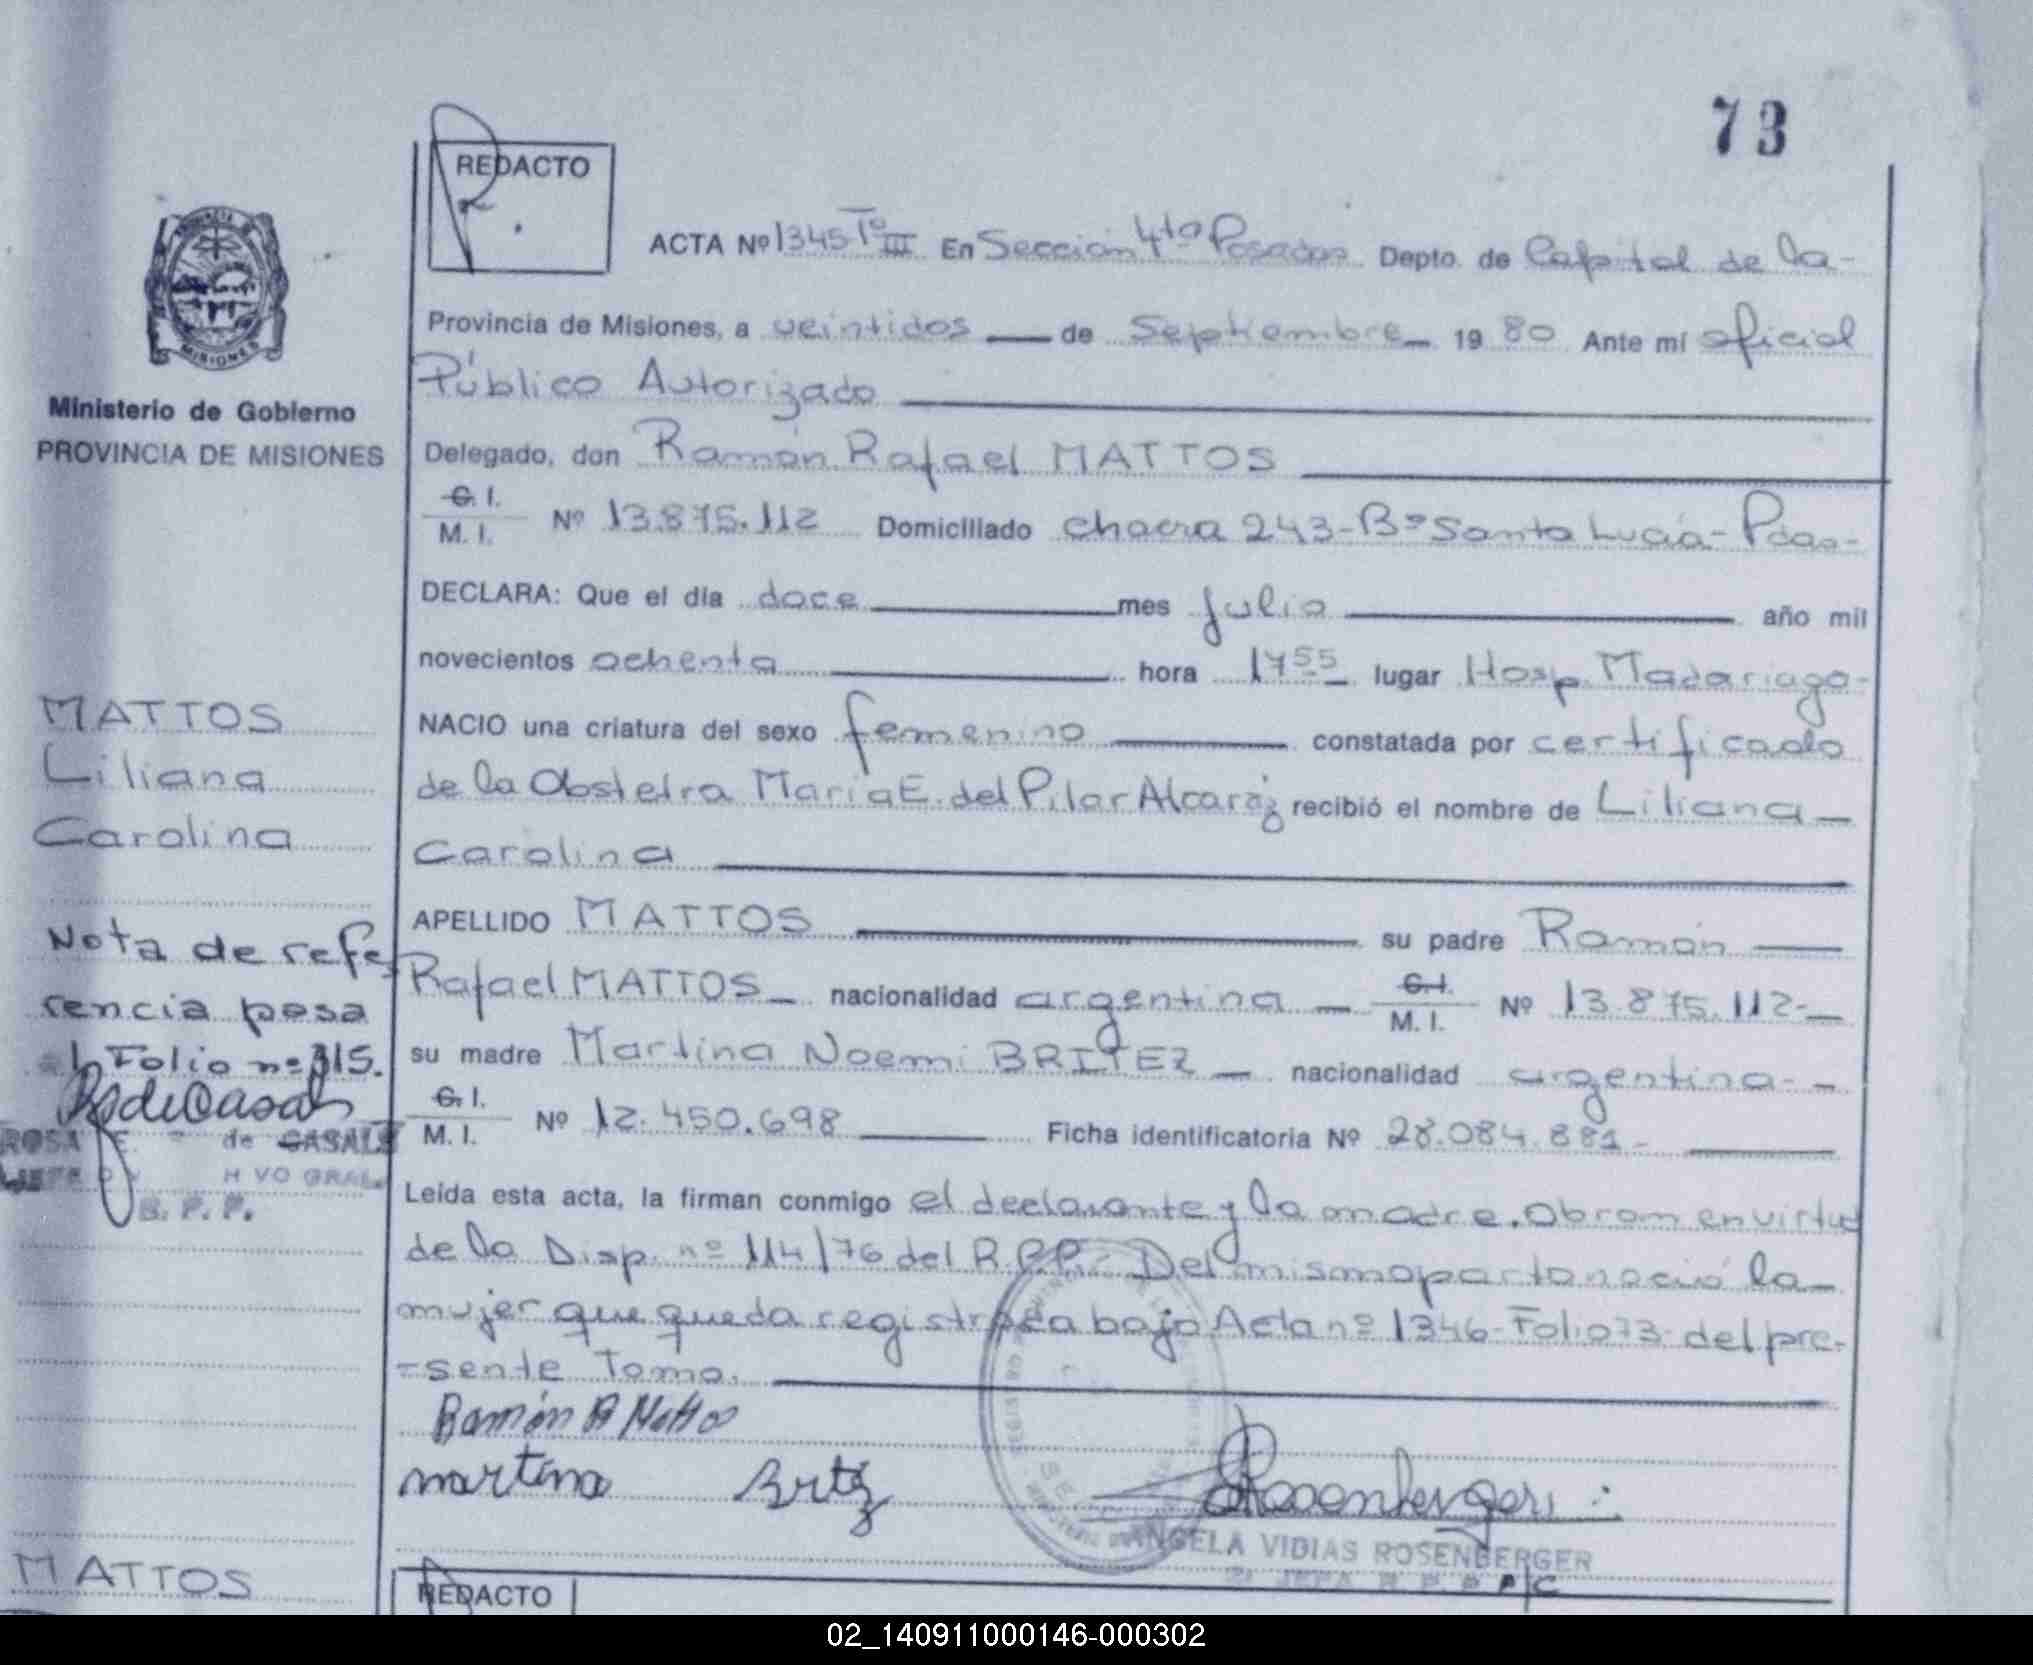 73
REDACTO
ACTA Nº 1345 Tº III En Sección 4ta Posadas Depto. de Capital de la-
Provincia de Misiones, a veintidos — de Septiembre — 19 80 Ante mí oficial
Público Autorizado
Delegado, don Ramón Rafael MATTOS
C. I.
M. I. Nº 13.875.112 Domiciliado chacra 243-Bº Santa Lucía-Pdas-
DECLARA: Que el día doce mes julio año mil
novecientos ochenta hora 17 55 lugar Hosp. Madariaga-
NACIO una criatura del sexo femenino constatada por certificado
de la Obstetra María E. del Pilar Alcaráz recibió el nombre de Liliana —
Carolina
APELLIDO MATTOS su padre Ramón
Rafael MATTOS — nacionalidad argentina — C. I.
M. I. Nº 13.875.112-
su madre Martina Noemi BRITEZ — nacionalidad argentina-
C. I.
M. I. Nº 12.450.698 Ficha identificatoria Nº 28.084.881-
Leída esta acta, la firman conmigo el declarante y la madre. Obram en virtud
de la Disp. nº 114/76 del R.P.P.- Del mismo parto nació la —
mujer que queda registrada bajo Acta nº 1346-Folio 73-del pre-
-sente Tomo.
Ramón R Mattos
martina Brtz
Rosenberger
ANGELA VIDIAS ROSENBERGER
JEFA R. P.
REDACTO
PROVINCIA DE
MISIONES
Ministerio de Gobierno
PROVINCIA DE MISIONES
MATTOS
Liliana
Carolina
Nota de refe
rencia pasa
al Folio nº 315.
RdeCasals
ROSA E. de CASALS
JEFA VO GRAL.
R. P. P.
MATTOS
02_140911000146-000302